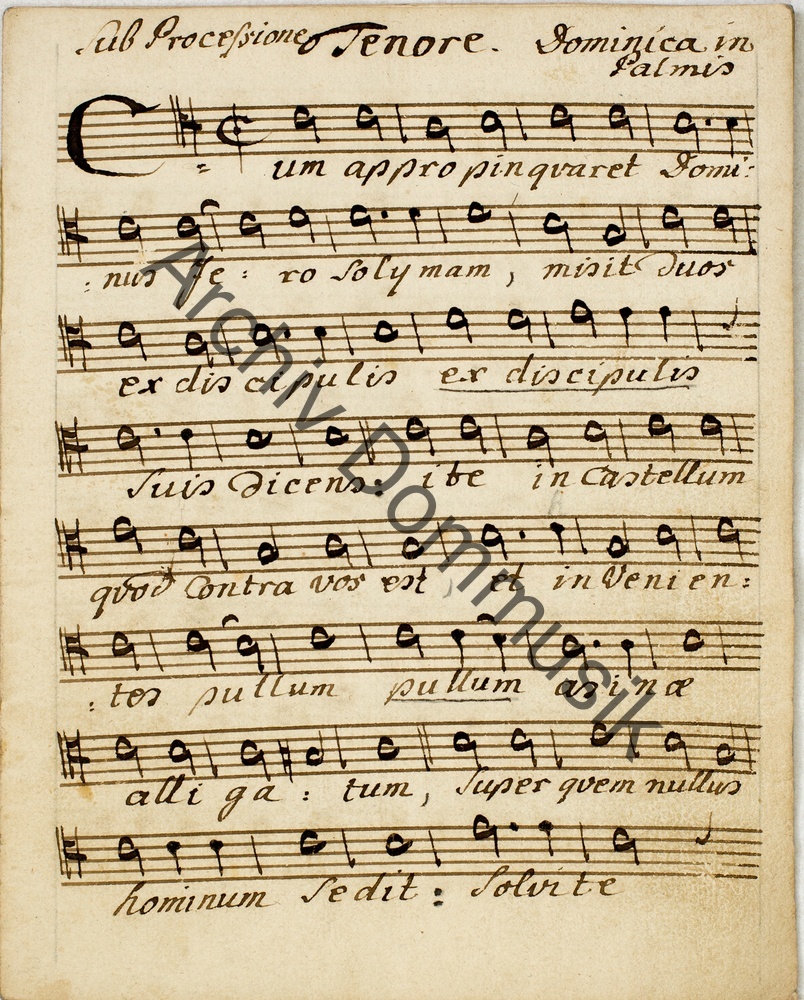 Sub Processione Tenore. Dominica in
Palmis
Cum appropinqvaret Domi:
:nus Je: ro solymam, misit duos
ex discipulis ex discipulis
suis dicens: ite in Castellum
qvod Contra vos est, et inVenien:
:tes pullum pullum asinæ
alli ga: tum, super qvem nullus
hominum sedit: solvite
Archiv Dommusik